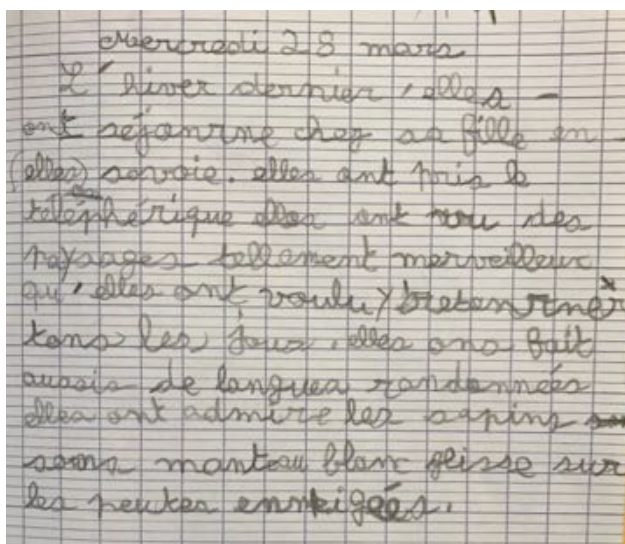 Mercredi 28 mars
L'hiver dernier, elles -
ont séjourné chez sa fille en -
(elles) savoie. elles ont pris le
téléphérique elles ont vu des
paysages tellement merveilleux
qu'elles ont voulu y
tous les jous. elles ons fait
aussis de langues randonnées
elles ont admire les sapins
sons manteau blanc glisse sur
les peutes enneigées.